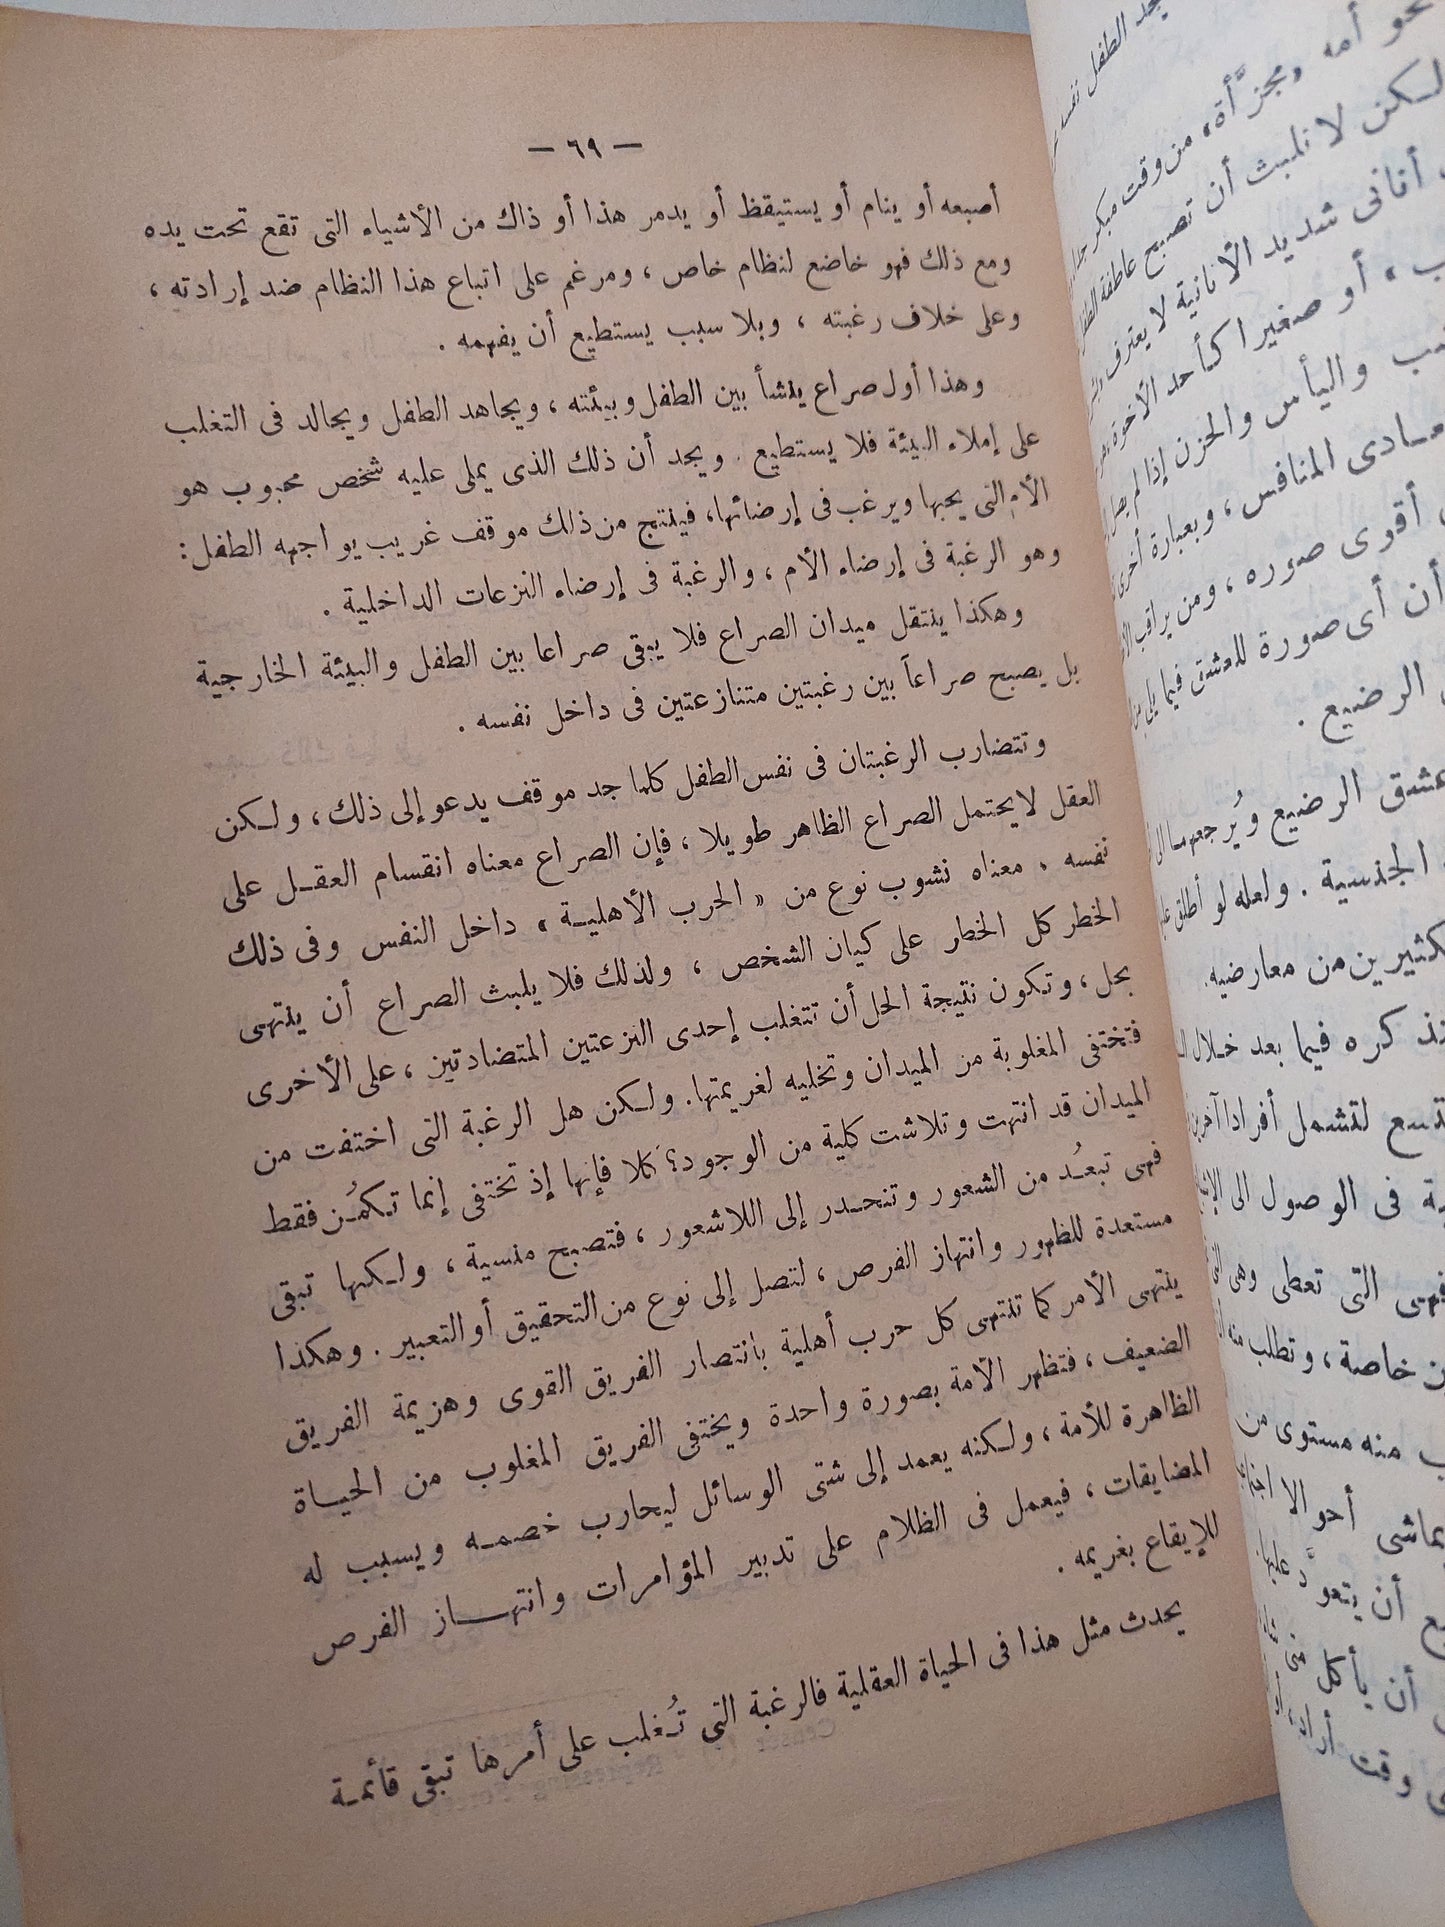 — ٦٩ —
أصبعه أو ينام أو يستيقظ أو يدمر هذا أو ذاك من الأشياء التى تقع تحت يده
ومع ذلك فهو خاضع لنظام خاص ، ومرغم على اتباع هذا النظام ضد إرادته ،
وعلى خلاف رغبته ، وبلا سبب يستطيع أن يفهمه .
وهذا أول صراع ينشأ بين الطفل وبيئته ، ويجاهد الطفل ويجالد فى التغلب
على إملاء البيئة فلا يستطيع . ويجد أن ذلك الذى يملى عليه شخص محبوب هو
الأم التى يحبها ويرغب فى إرضائها، فينتج من ذلك موقف غريب يواجهه الطفل:
وهو الرغبة فى إرضاء الأم ، والرغبة فى إرضاء النزعات الداخلية .
وهكذا ينتقل ميدان الصراع فلا يبقى صراعا بين الطفل والبيئة الخارجية
بل يصبح صراعاً بين رغبتين متنازعتين فى داخل نفسه .
وتتضارب الرغبتان فى نفس الطفل كلما جد موقف يدعو إلى ذلك ، ولكن
العقل لا يحتمل الصراع الظاهر طويلا ، فإن الصراع معناه انقسام العقل على
نفسه . معناه نشوب نوع من « الحرب الأهلية » داخل النفس وفى ذلك
الخطر كل الخطر على كيان الشخص ، ولذلك فلا يلبث الصراع أن ينتهى
بحل ، وتكون نتيجة الحل أن تتغلب إحدى النزعتين المتضادتين ، على الأخرى
فتختفى المغلوبة من الميدان وتخليه لغريمتها. ولكن هل الرغبة التى اختفت من
الميدان قد انتهت وتلاشت كلية من الوجود؟ كلا فإنها إذ تختفى إنما تكمُن فقط
فهى تبعُد من الشعور وتنحدر إلى اللاشعور ، فتصبح منسية ، ولكنها تبقى
مستعدة للظهور وانتهاز الفرص ، لتصل إلى نوع من التحقيق أو التعبير . وهكذا
ينتهى الأمر كما تنتهى كل حرب أهلية بانتصار الفريق القوى وهزيمة الفريق
الضعيف ، فتظهر الأمة بصورة واحدة ويختفى الفريق المغلوب من الحياة
الظاهرة للأمة ، ولكنه يعمد إلى شتى الوسائل ليحارب خصمه ويسبب له
المضايقات ، فيعمل فى الظلام على تدبير المؤامرات وانتهاز الفرص
للإيقاع بغريمه .
يحدث مثل هذا فى الحياة العقلية فالرغبة التى تُغلب على أمرها تبقى قائمة
يجد الطفل نفسه
نحو أمه ومجزَّأة، من وقت مبكر
لكن لا نلبث أن تصبح عاطفة الطفل
أنانى شديد الأنانية لا يعترف
، أو صغيرا كأحد الأخوة
واليأس والحزن إذا لم يصل
المنافس ، وبعبارة أخرى
أقوى صوره ، ومن يراقب
أن أى صورة للعشق فيما يلى
الرضيع .
عشق الرضيع ويُرجعهما الى
الجنسية . ولعله لو أطلق
كثيرين من معارضيه.
كره فيما بعد خلال
لتشمل أفرادا آخرين
فى الوصول الى
فهى التى تعطى وهى
خاصة ، وتطلب منه
منه مستوى من
أحوالا
أن يتعوَّد عليها.
أن يأكل متى
وقت أراد،